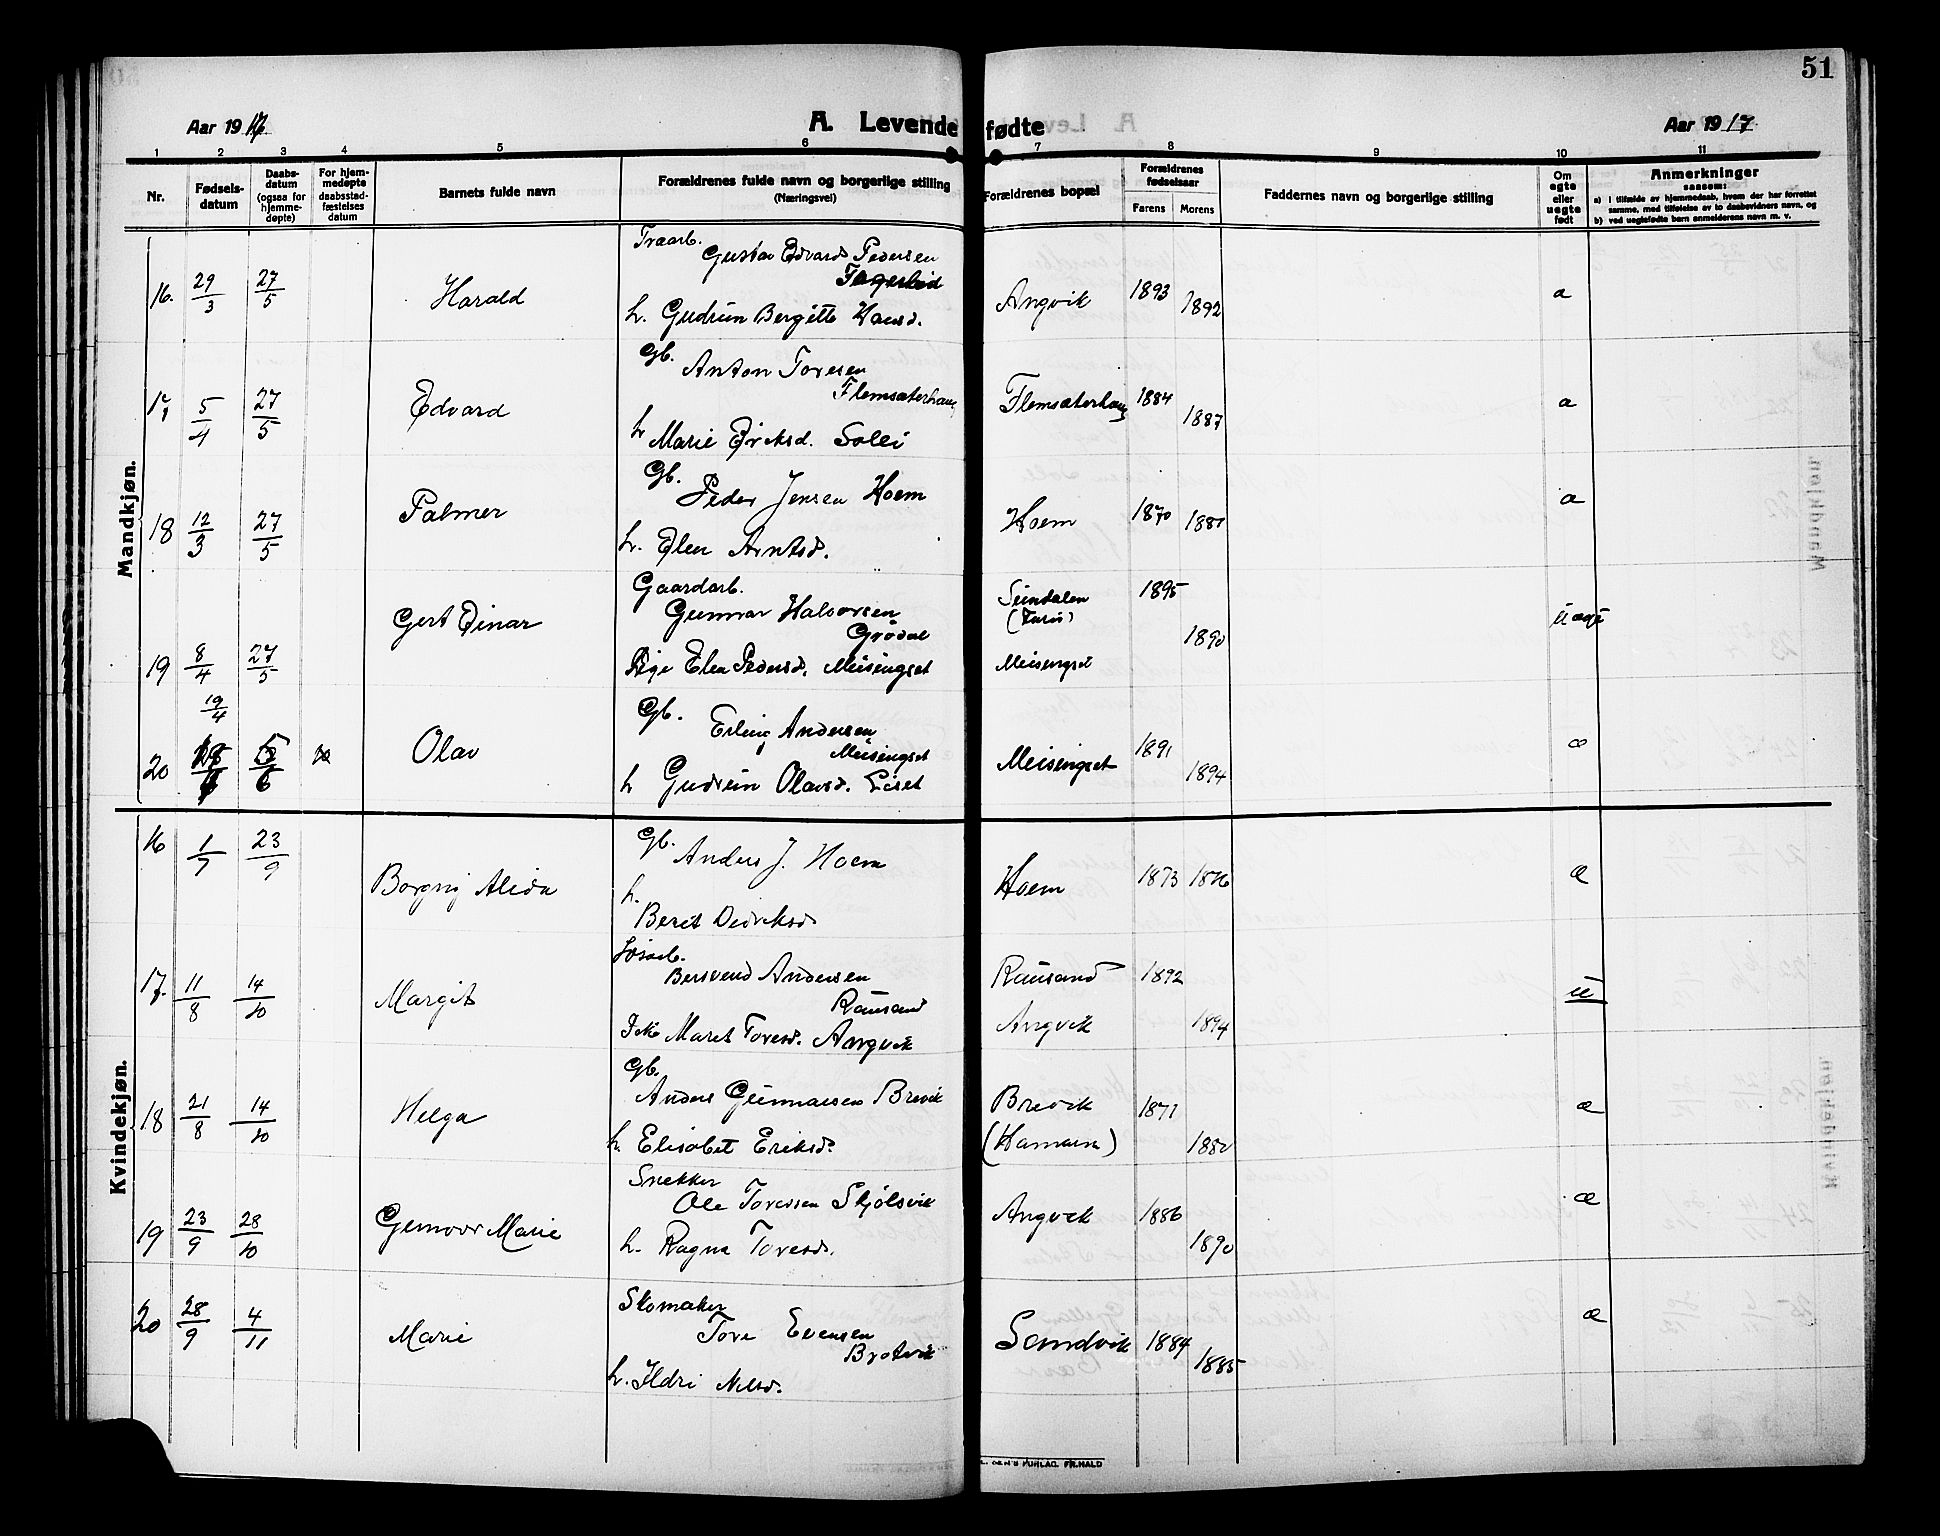 51
Aar 1917
A. Levende fødte
Aar 1917
1 2 3 4 5 6 7 8 9 10 11
Nr.
Fødsels-
datum
Daabs-
datum
(ogsaa for
hjemme-
døpte)
For hjem-
medøpte
daabsstad-
fæstelses
datum
Barnets fulde navn
Forældrenes fulde navn og borgerlige stilling
(Næringsvei)
Forældrenes bopæl
Forældrenes
fødselsaar
Farens Morens
Faddernes navn og borgerlige stilling
Om
egte
eller
uegte
født
Anmerkninger
saasom:
a) i tilfælde av hjemmedaab, hvem der har forrettet
samme, med tilføielse av to daabsvidners navn, og
b) ved uegtefødte barn anmelderens navn m. v.
Mandkjøn.
Traarb.
Gustav Edvard Pedersen
16. 29/3 27/5 Harald Angvik 1893 1892 a
h. Gudrun Bergitte Hansd.
Gb.
Anton Toresen
Flemsæterhaug
17 5/4 27/5 Edvard Flemsæterhaug 1884 1887 a
h Marie Eireksd. Solei
Gb.
Peder Jensen Hoem
18 12/3 27/5 Palmer Hoem 1870 1881 a
h. Elen Arntsd.
Gaardarb.
Gunnar Halvorsen
Grødal
Gert Einar 1895 1890
19 8/4 27/5 Pige Elen Pedersd. Meisingset Meisingset
19/4
Gb.
Erling Andersen
Meisingset
20 5/6 Olav Meisingset 1891 1894
h Gudrun Olavsd. Eiset
Kvindekjøn.
Gb.
Anders J. Hoem
16 1/7 23/9 Borgny Alida Hoem 1873 1876 æ
h.
Berit Didriksd
Løsarb.
Bersvend Andersen
Rausand
17. 11/8 14/10 Margit Rausand 1892 u
Pike Marit Toresd. Angvik Angvik 1894
Gb.
Anders Gunnarsen Brevik
18 21/8 14/10 Helga Brevik 1871 æ
h. Elisabet Eriksd. (Hamarn) 1880
Snekker
Ole Toressen Skjølsvik
19 23/9 28/10 Gunvor Marie Angvik 1886 1890 æ
h. Ragna Toresd.
Skomaker
Tore Evensen
Brotvik
20 28/9 4/11 Marie Sandvik 1884 1885 æ
h. Ildri Nilsd.
FR. HALD